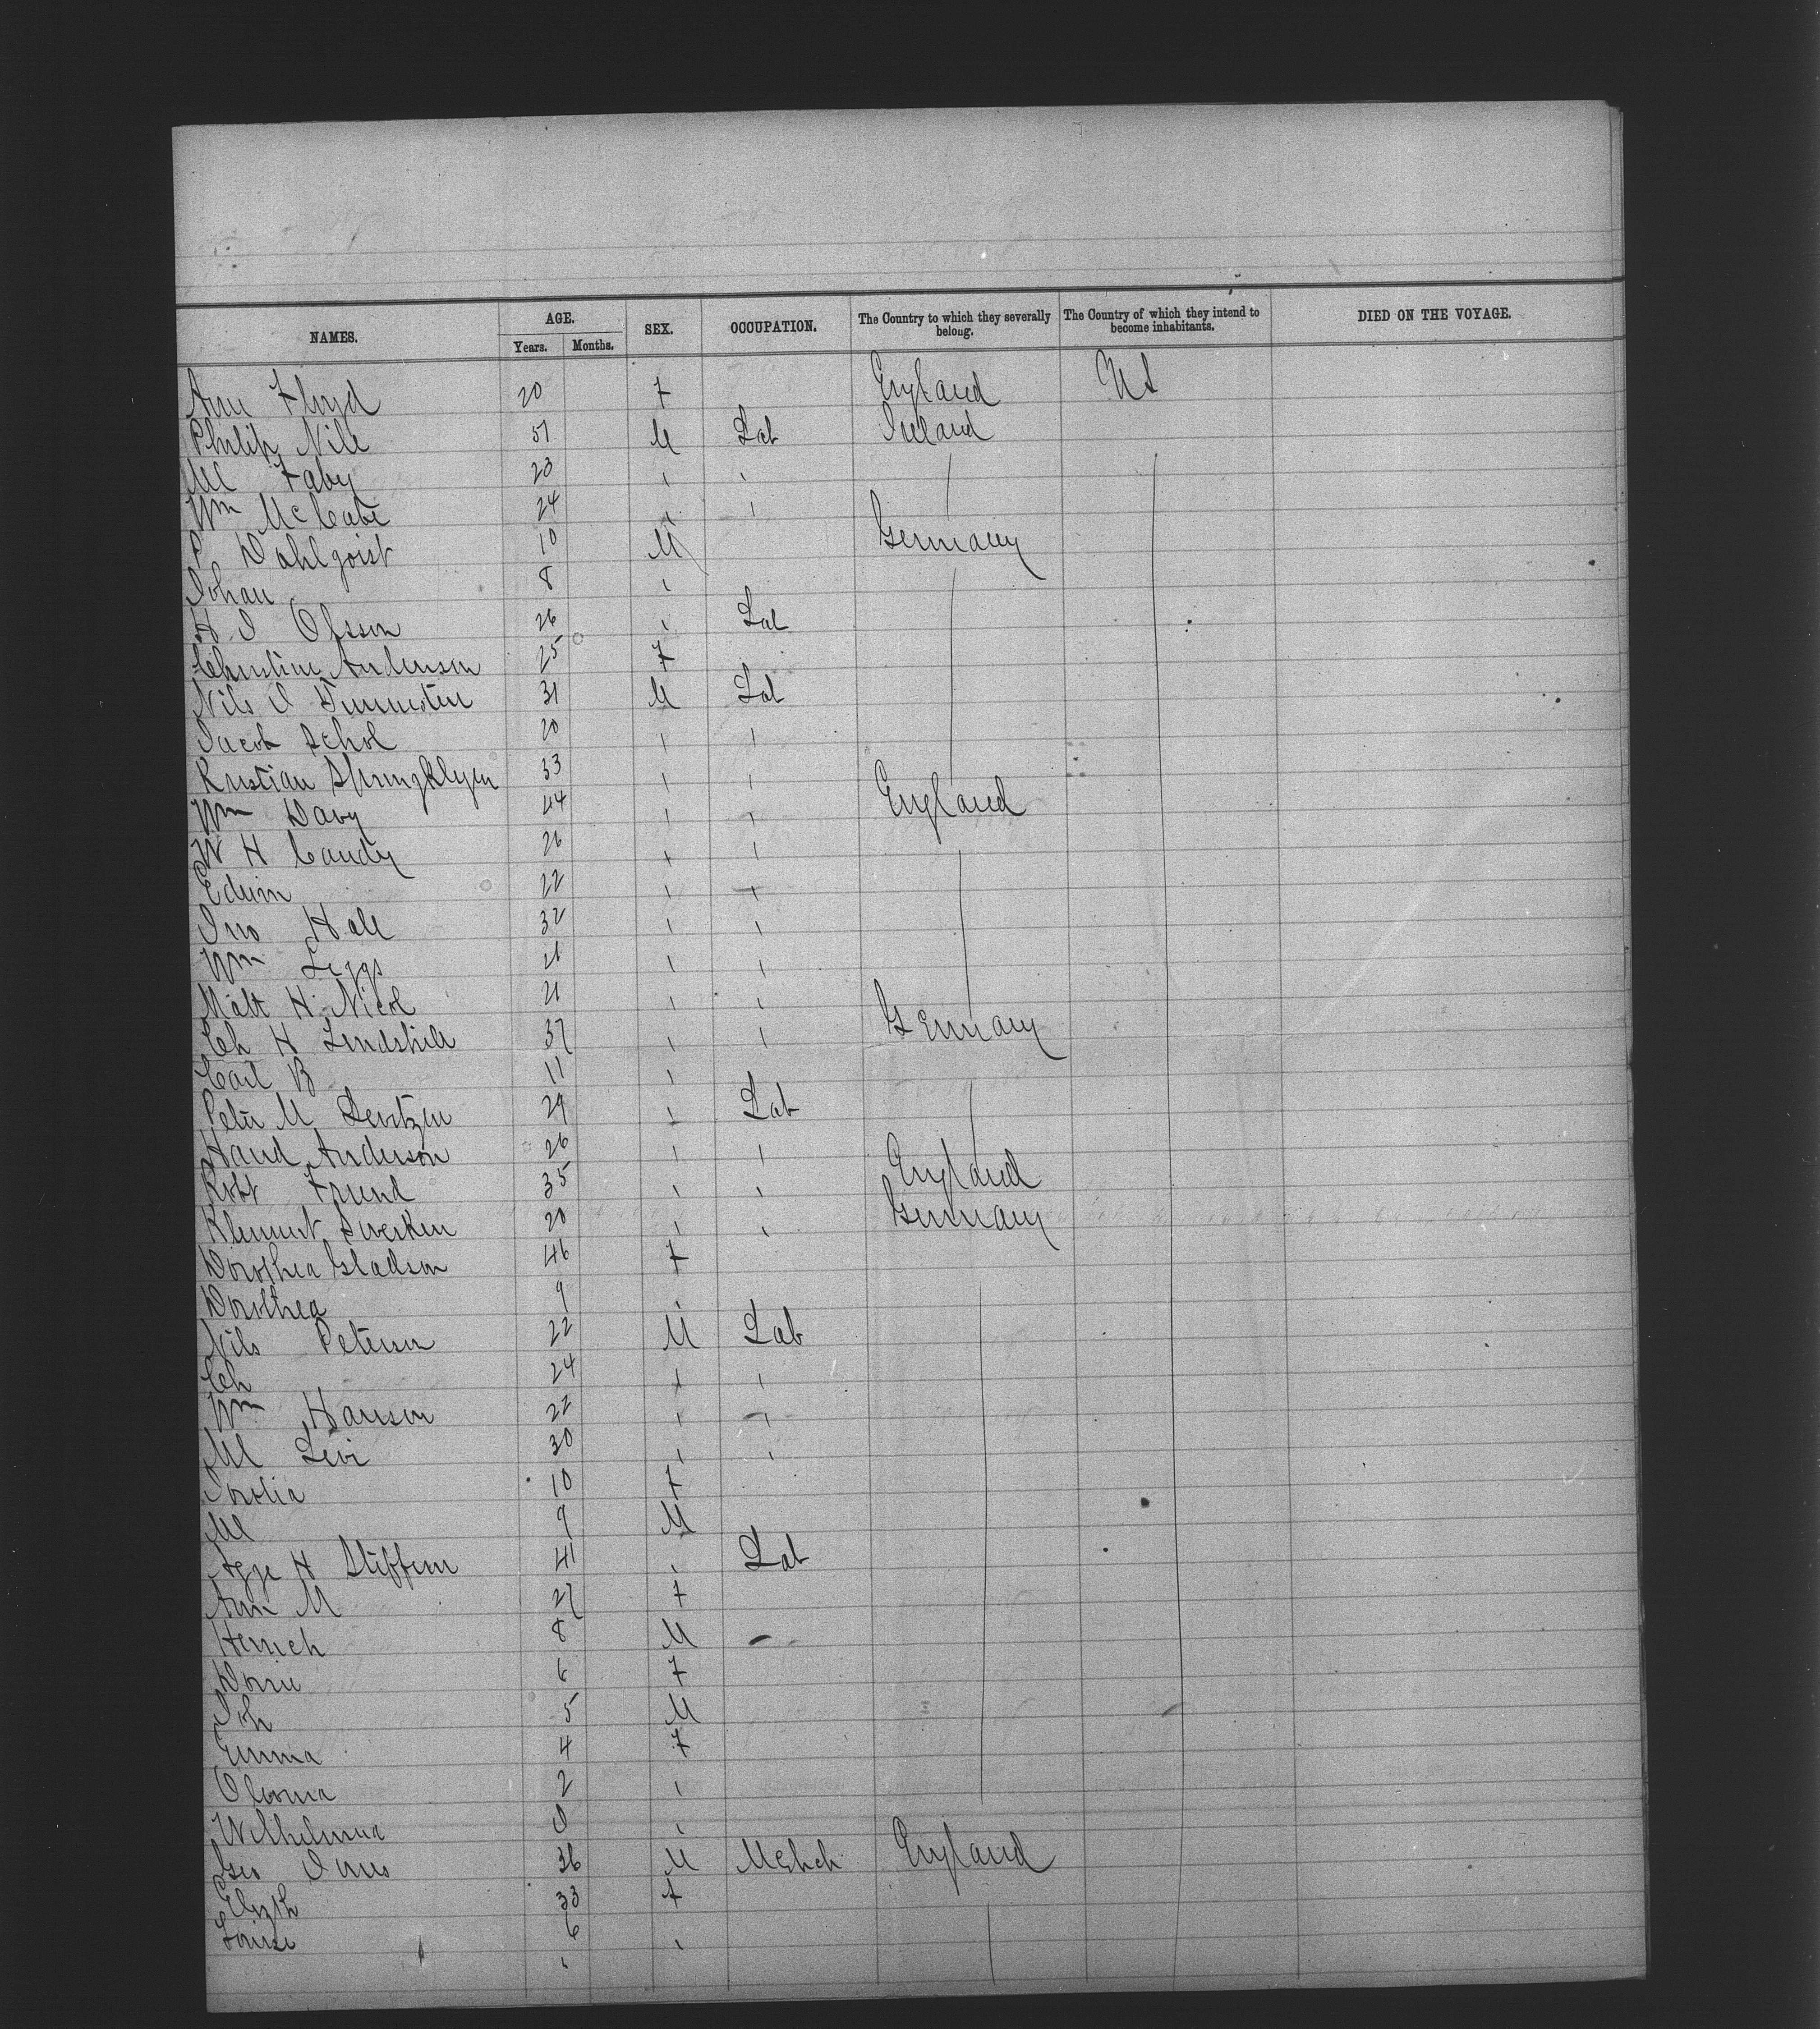 NAMES. AGE. Years. Months. SEX. OCCUPATION. The Country to which they severally belong. The Country of which they intend to become inhabitants. DIED ON THE VOYAGE.
Ann Floyd 20 F England US
Philip Nill 51 M Lab Ireland
Ml Fahy 23 " "
Wm McCabe 24 " "
P Dahlqoist 10 M Germany
Johan 8 "
H J Olsson 26 " Lab
Christine Anderson 25 F
Nils J 31 M Lab
Jacob Schol 20 " "
Kristian 33 " "
Wm Davy 44 " " England
W H Candy 26 " "
Edwin 22 " "
Jno Hall 32 " "
Wm Leggs 21 " "
Matt H Nicol 21 " "
Ch H Lindshill 37 " " Germany
Carl B 11 "
Peter M 29 " Lab
Anderson 26 " "
Robt Friend 35 " " England
Klement 20 " " Germany
Dorothea Gladson 46 F
Dorothea 9 "
Nils Peterson 22 M Lab
Ch 24 " "
Wm Hanson 22 " "
Ml Levi 30 " "
10 F
Ml 9 M
Agge H Steffem 41 " Lab
Ann M 27 F
Henrich 8 M
6 F
Joh 5 M
Emma 4 F
2 "
Wilhelmina 0 "
Geo Jones 36 M Mchch England
Elizth 33 F
Louise 6 "